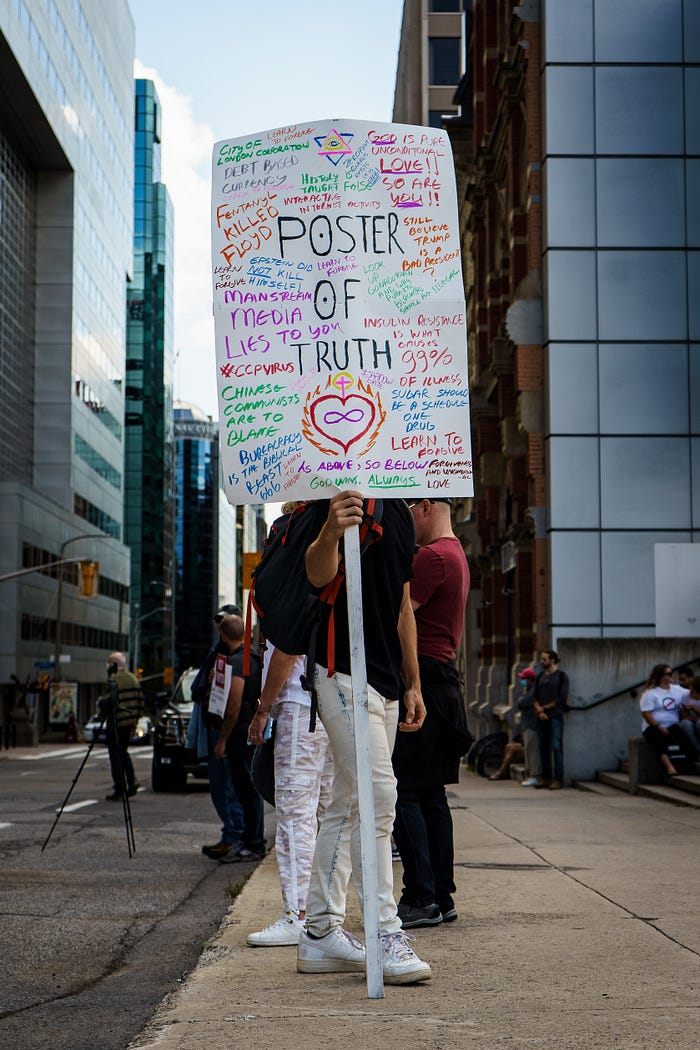 LEARN TO FORGIVE
CITY OF
LONDON CORPORATION
DEBT BASED
CURRENCY
FENTANYL
KILLED
FLOYD
HISTORY IS
TAUGHT FALSE
INTERACTIVE
INTERNET ACTIVITY
GOD IS PURE
UNCONDITIONAL
LOVE!!
SO ARE
YOU!!
STILL
BELIEVE
TRUMP
IS A
BAD PRESIDENT
?
POSTER
OF
TRUTH
LEARN
TO
FORGIVE
EPSTEIN DID
NOT KILL
HIMSELF)
LEARN TO
FORGIVE
LOOK
UP
MAINSTREAM
MEDIA
LIES TO YOU
#CCPVIRUS
CHINESE
COMMUNISTS
ARE TO
BLAME
BUREACRACY
IS THE BIBLICAL
BEAST
666
LEARN
TO
FORGIVE
INSULIN RESISTANCE
IS WHAT
CAUSES
99%
OF ILLNESS
SUGAR SHOULD
BE A SCHEDULE
ONE
DRUG
LEARN TO
FORGIVE
AS ABOVE, SO BELOW
GOD WINS. ALWAYS
FORGIVENESS
LOVE